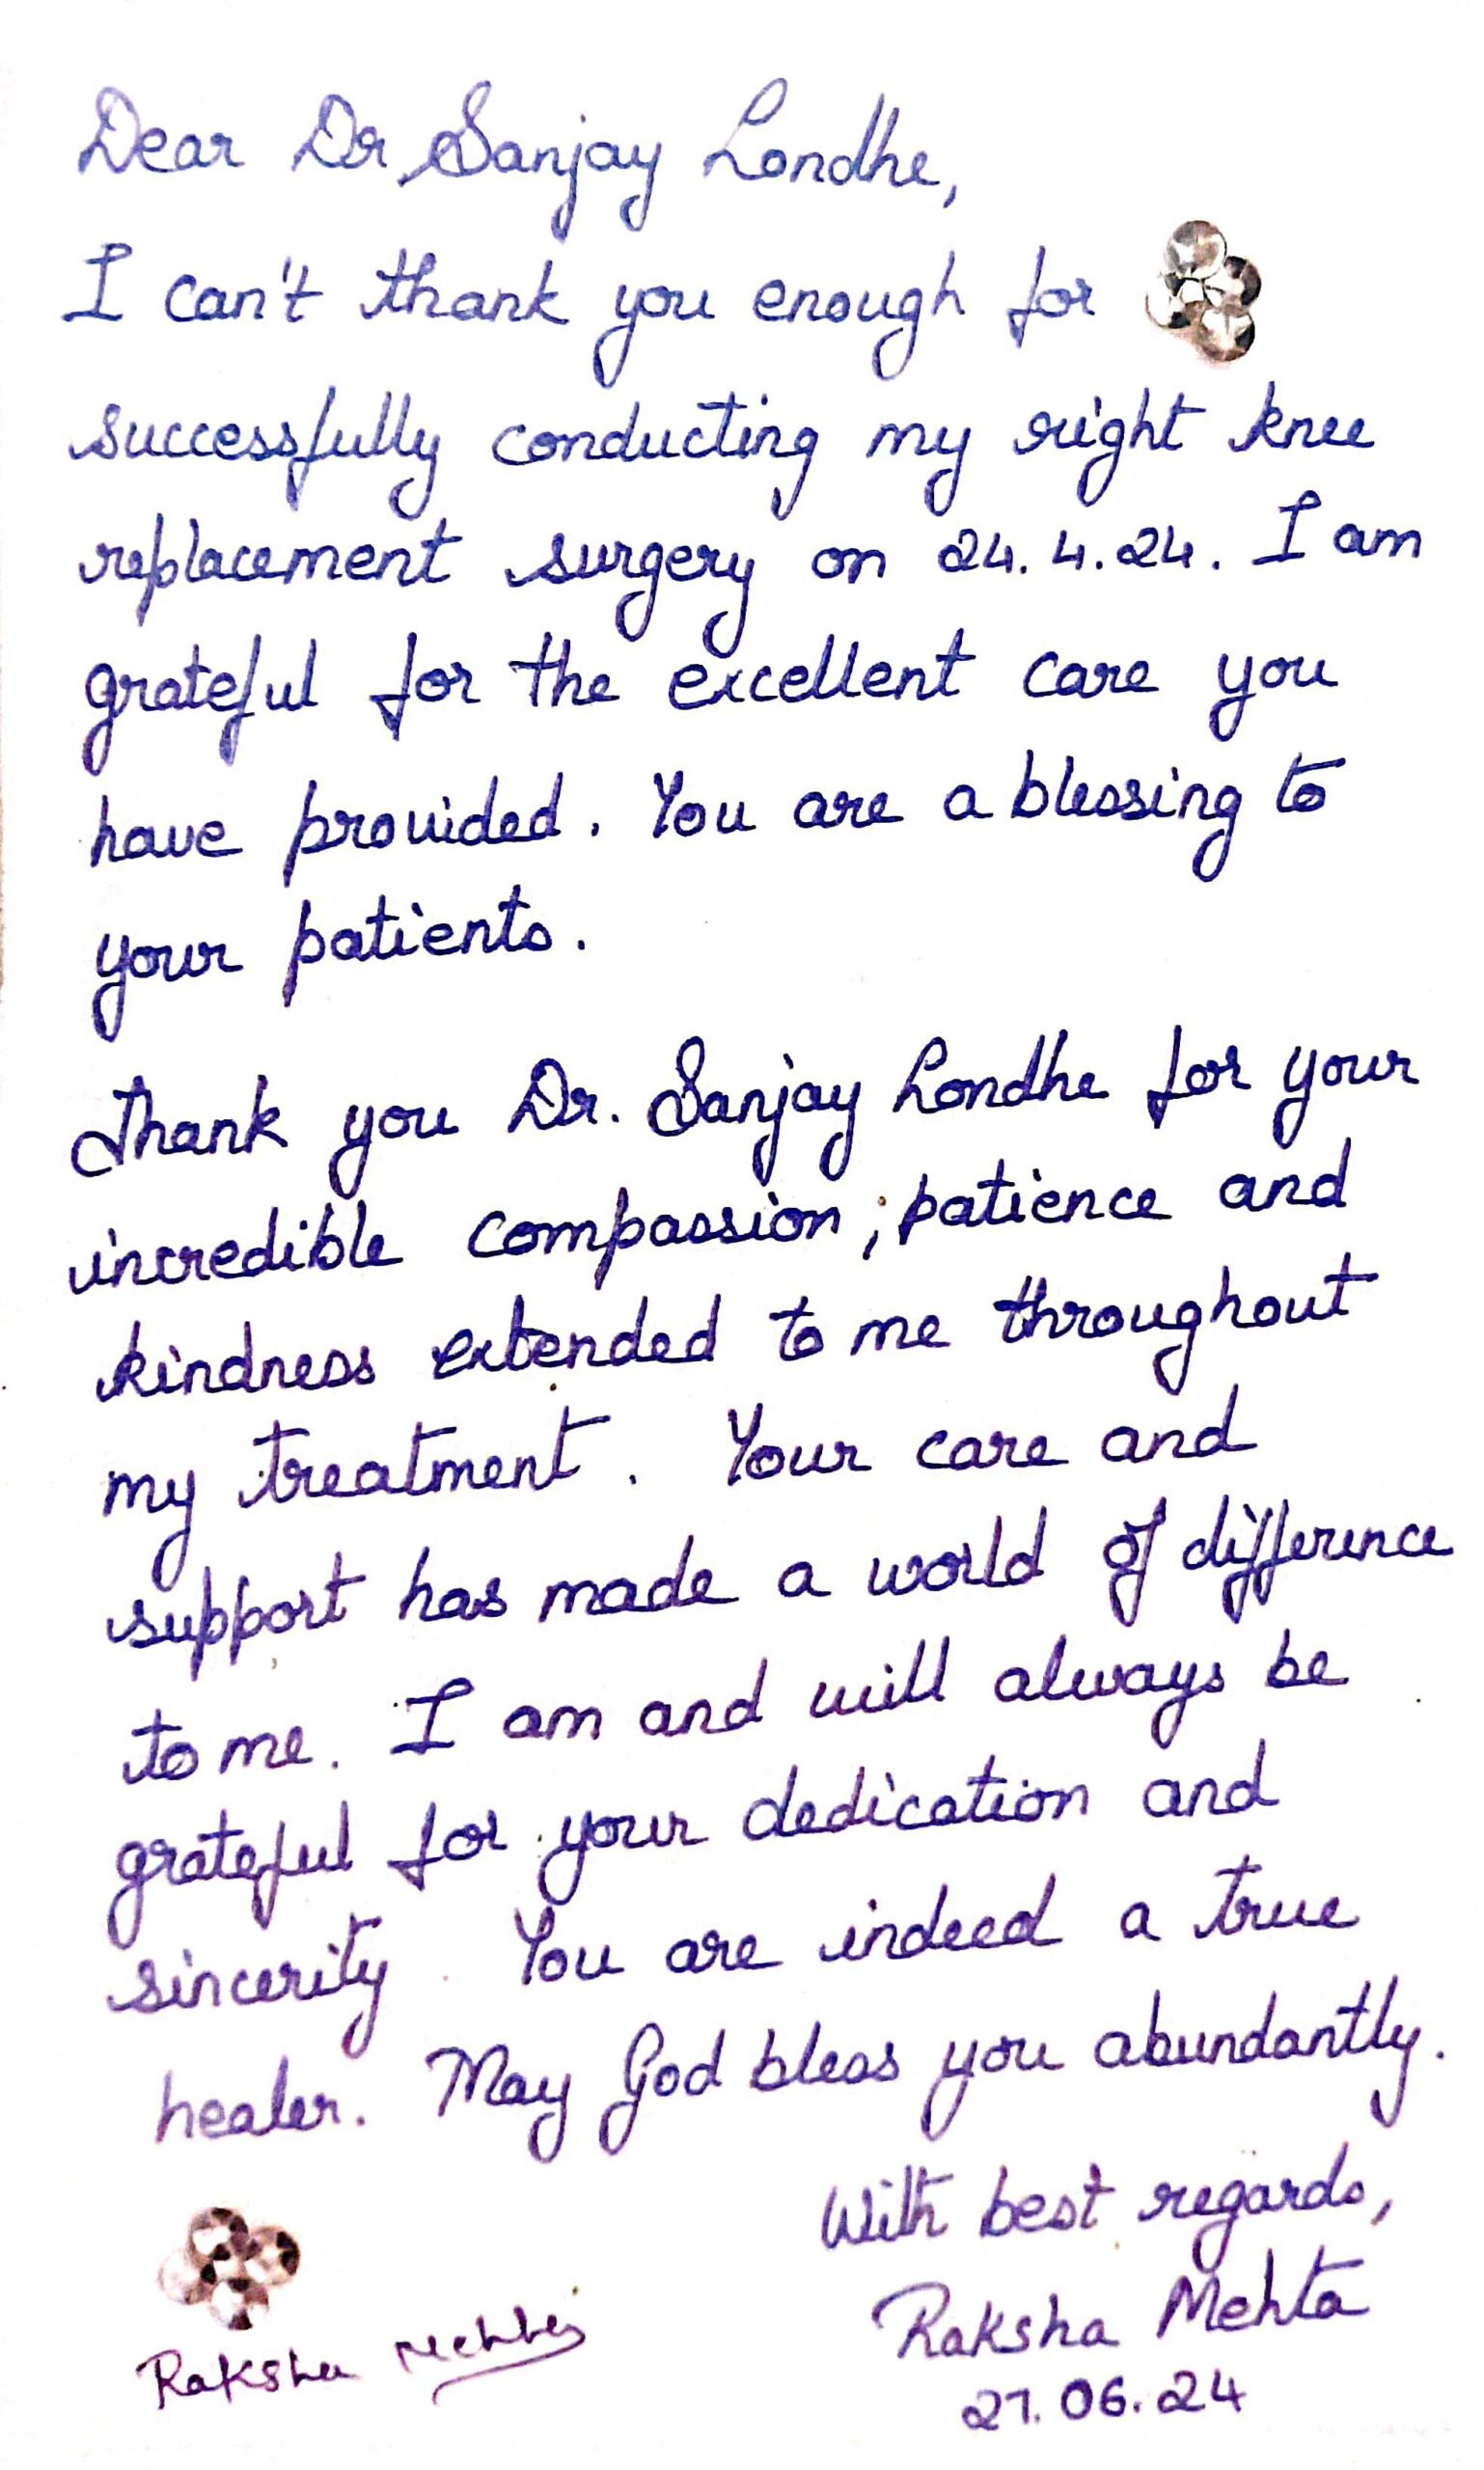 Dear Dr. Sanjay Londhe,
I can't thank you enough for
successfully conducting my right knee
replacement surgery on 24.4.24. I am
grateful for the excellent care you
have provided. You are a blessing to
your patients.
Thank you Dr. Sanjay Londhe for your
incredible compassion, patience and
kindness extended to me throughout
my treatment. Your care and
support has made a world of difference
to me. I am and will always be
grateful for your dedication and
sincerity. You are indeed a true
healer. May God bless you abundantly.
With best regards,
Raksha Mehta
21.06.24
Raksha Mehta